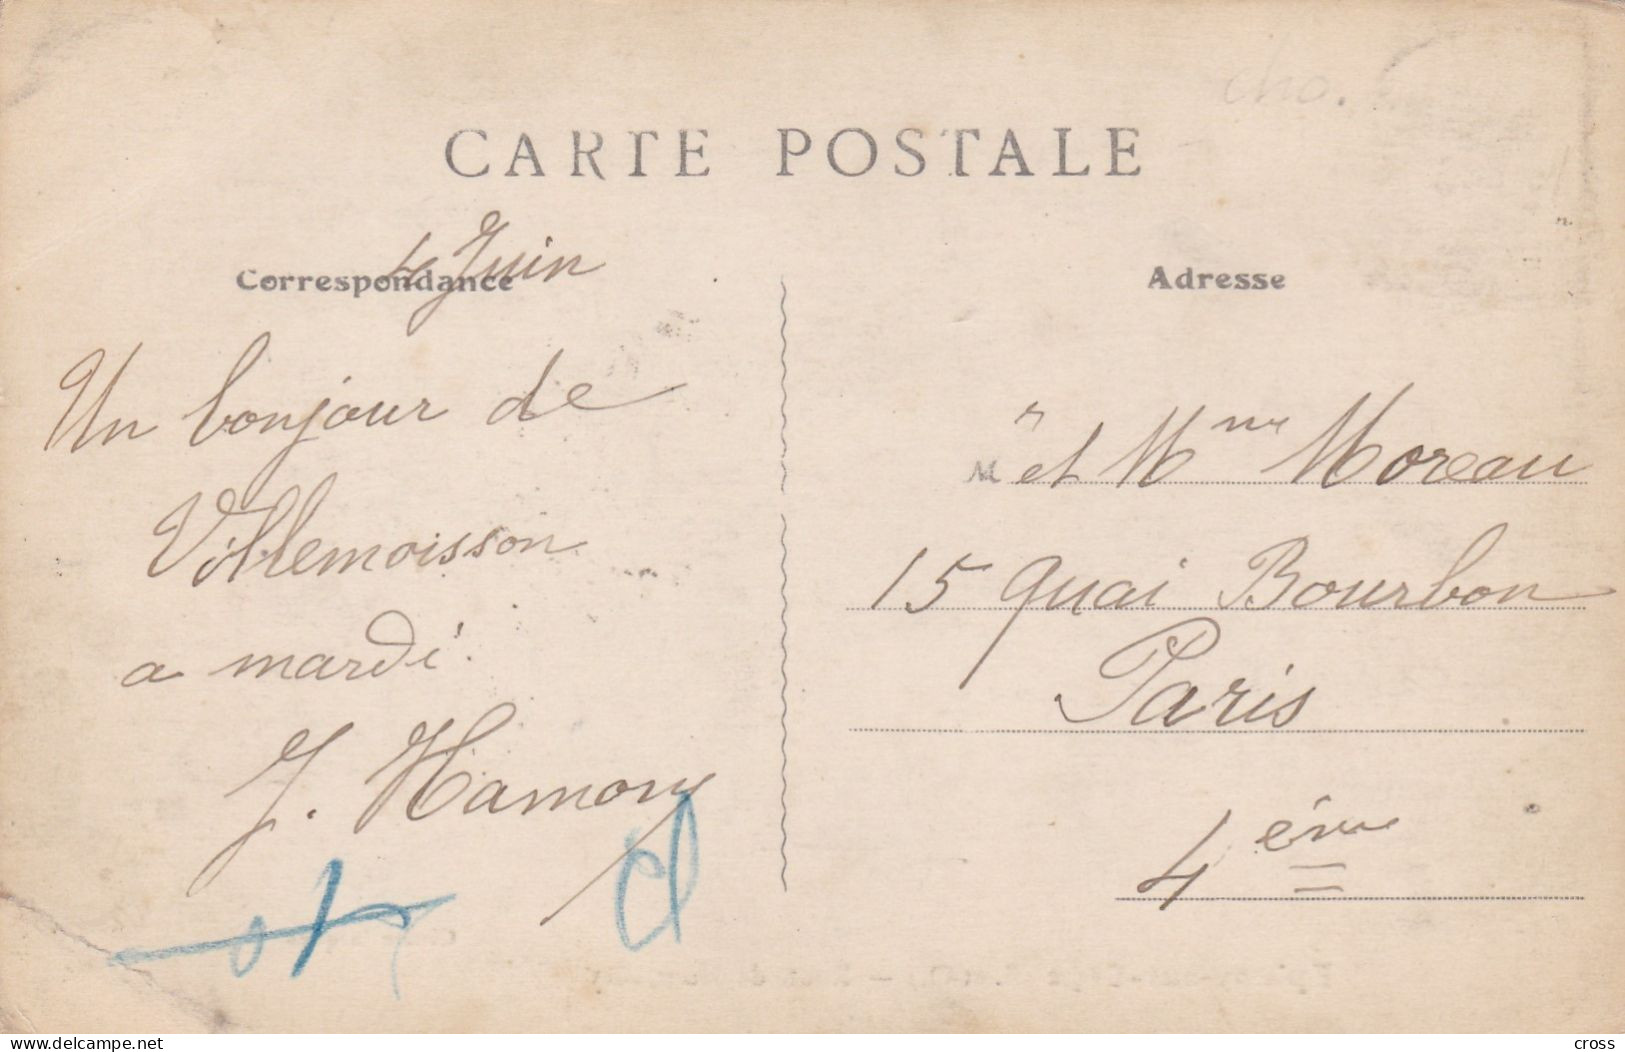 cho.
CARTE POSTALE
Correspondance
4 Juin
Un bonjour de
Villemoisson
a mardi.
J. Hamony
Adresse
Mr et Mme Moreau
15 quai Bourbon
Paris
4ème
www.delcampe.net
cross